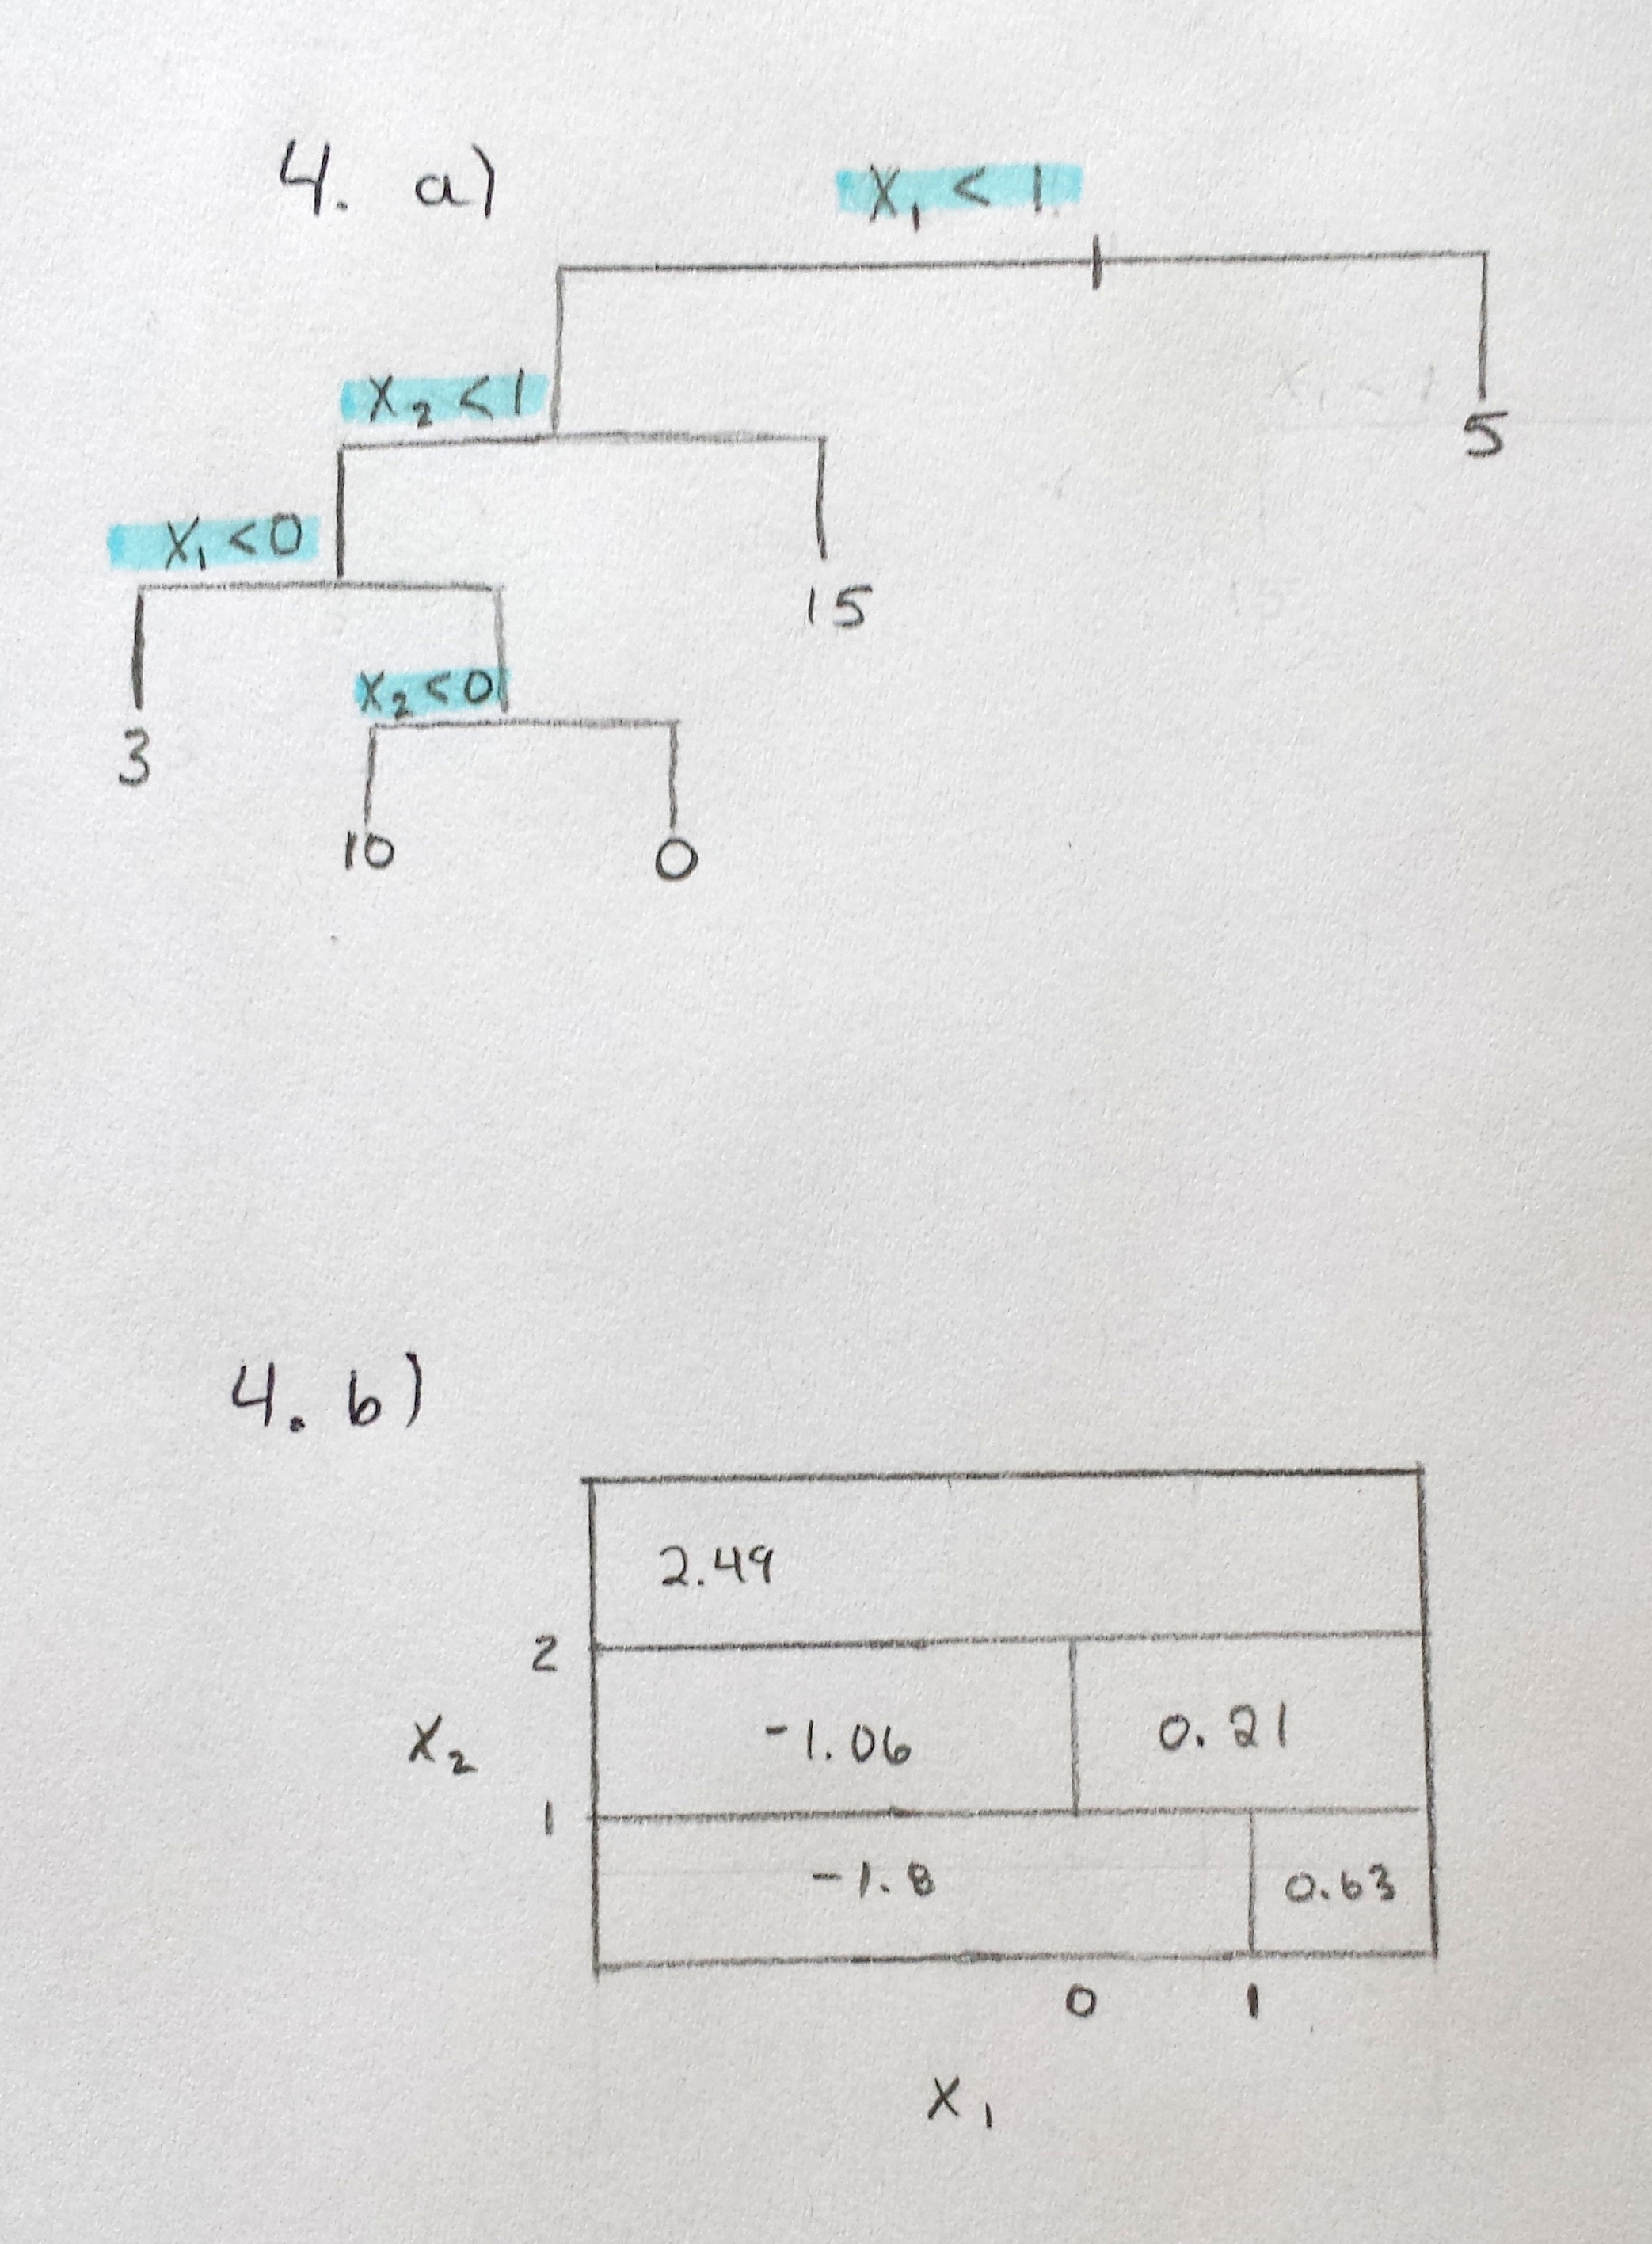 4. a)
X₁ < 1
X₂ < 1
5
X₁ < 0
15
X₂ < 0
3
10 0
4. b)
2.49
2
-1.06 0.21
X₂
1
-1.8 0.63
0 1
X₁